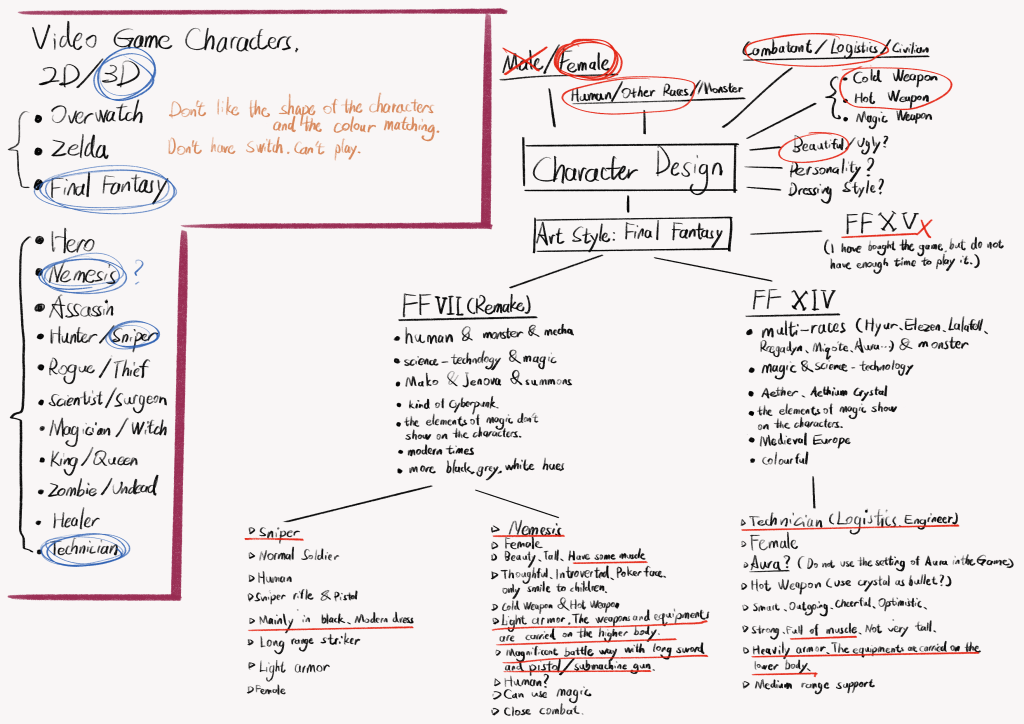 Video Game Characters.
2D/3D
• Overwatch
• Zelda
• Final Fantasy
Don't like the shape of the characters
and the colour matching.
Don't have Switch. Can't play.
• Hero
• Nemesis ?
• Assassin
• Hunter/Sniper
• Rogue/Thief
• Scientist/Surgeon
• Magician/Witch
• King/Queen
• Zombie/Undead
• Healer
• Technician
Male/Female
Human/Other Rates/Monster
Combatant/Logistics/Civilian
• Cold Weapon
• Hot Weapon
• Magic Weapon
Beautiful/Ugly?
Personality?
Dressing Style?
Character Design
Art Style: Final Fantasy
FF XV x
(I have bought the game, but do not
have enough time to play it.)
FF VII (Remake)
• human & monster & mecha
• science-technology & magic
• Mako & Jenova & summons
• kind of Cyberpunk.
• the elements of magic don't
show on the characters.
• modern times
• more black, grey, white hues
FF XIV
• multi-rates (Hyur, Elezen, Lalafell,
Roegadyn, Miqote, Aura...) & monster
• magic & science-technology
• Aether, Aethium Crystal
• the elements of magic show
on the characters.
• Medieval Europe
• colourful
▷ Sniper
▷ Normal Soldier
▷ Human
▷ Sniper rifle & Pistol
▷ Mainly in black, Modern dress
▷ Long range striker
▷ Light armor
▷ Female
▷ Nemesis
▷ Female
▷ Beauty, Tall, Have some muscle
▷ Thoughtful, Introverted, Poker face,
only smile to children.
▷ Cold Weapon & Hot Weapon
▷ Light armor, The weapons and equipments
are carried on the higher body.
▷ Magnificent battle way with long sword
and pistol/submachine gun.
▷ Human?
▷ Can use magic
▷ Close combat.
▷ Technician (Logistics, Engineer)
▷ Female
▷ Aura? (Do not use the setting of Aura in the Game)
▷ Hot Weapon (use crystal as bullet?)
▷ Smart, Outgoing, Cheerful, Optimistic,
▷ Strong, Full of muscle, Not very tall.
▷ Heavily armor, The equipments are carried on the
lower body.
▷ Medium range support